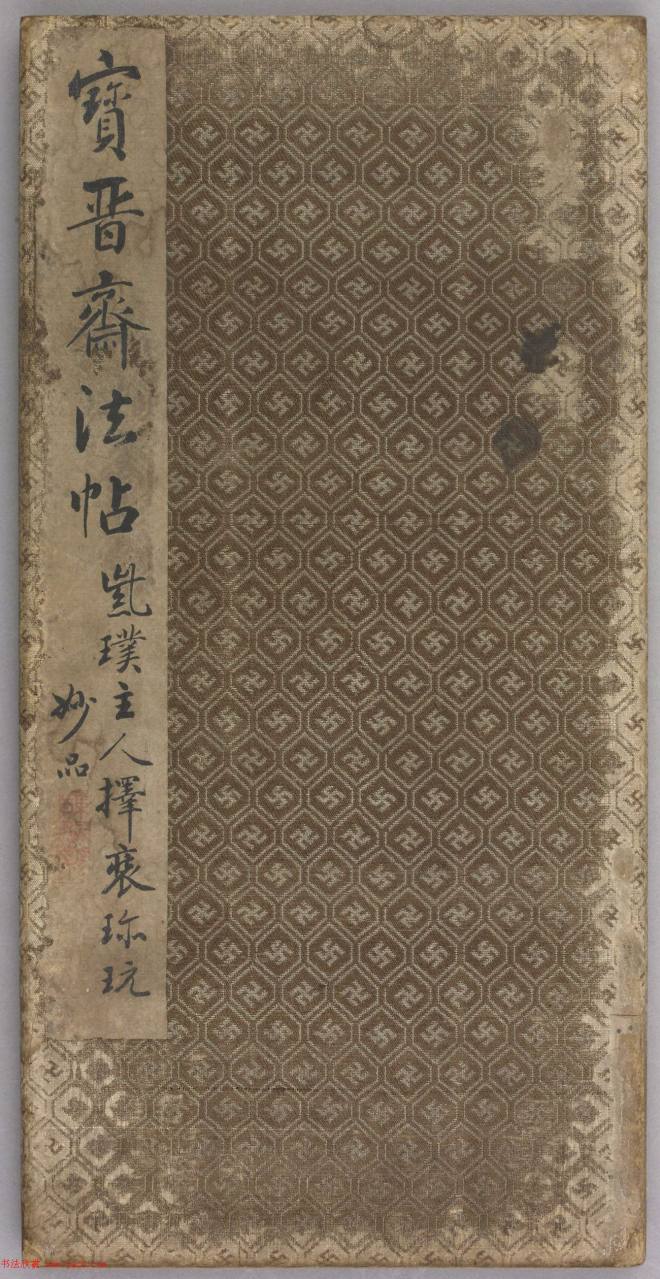 寶晋齋法帖
㟴璞主人擇裒珎玩
妙品
书法欣赏